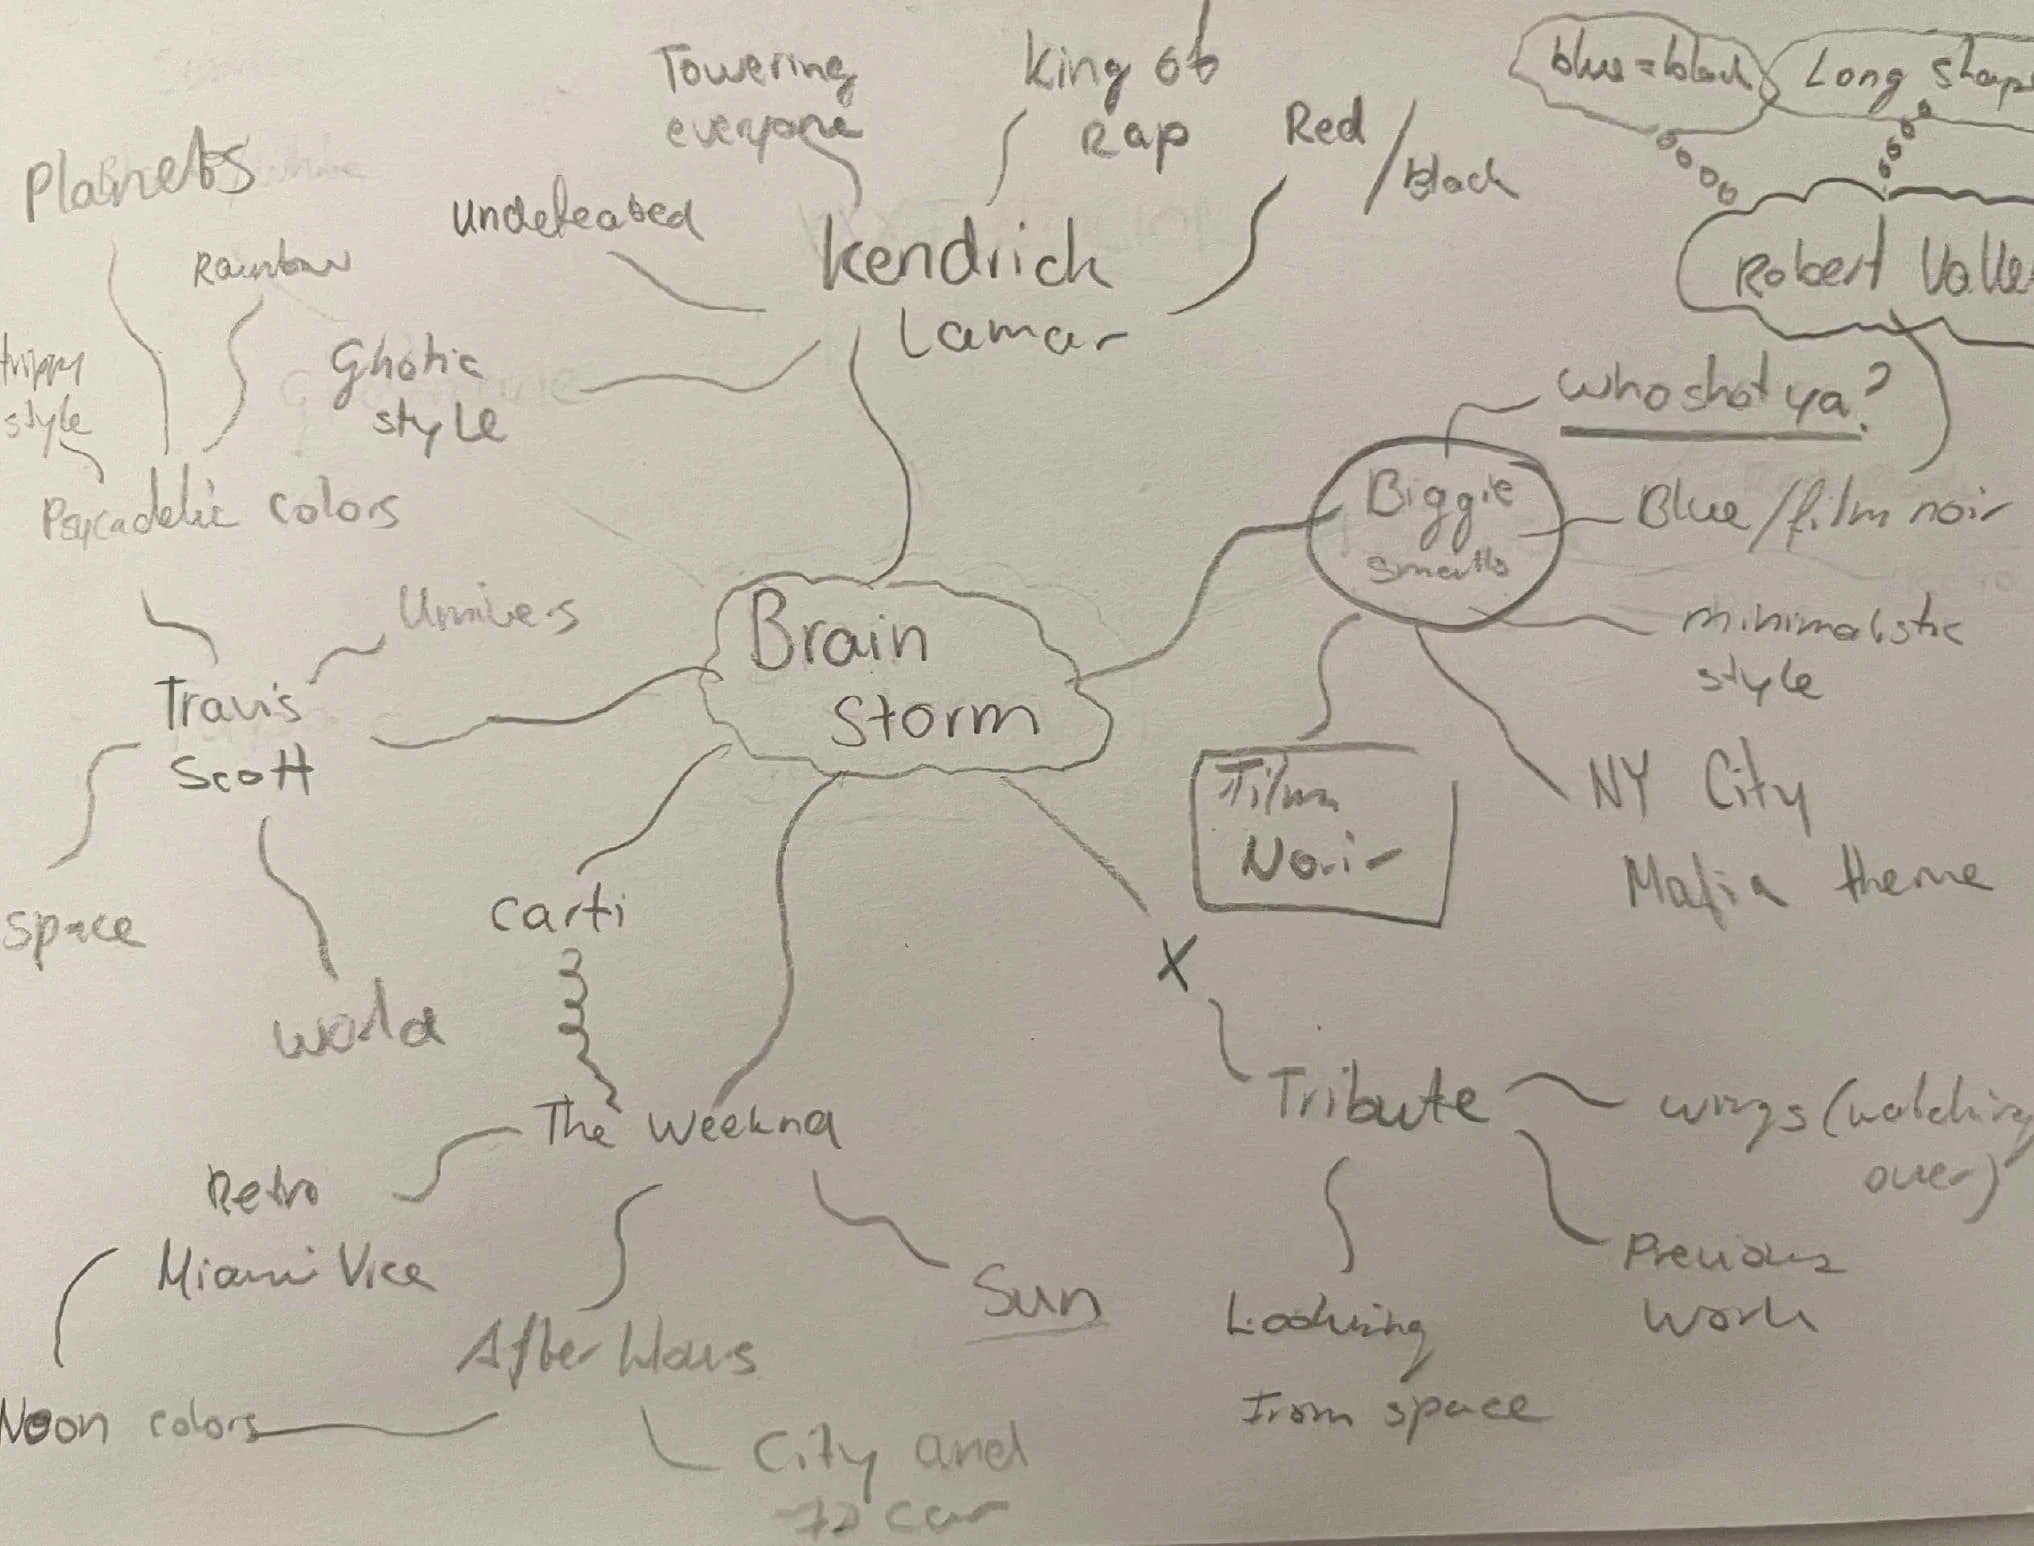 Towering
everyone
King of
Rap
Red
/black
blue=black
Long shap
Planets
Rainbow
undefeated
Kendrick
Lamar
Robert Valle
trippy
style
Ghotic
style
who shot ya?
Psycadelic colors
Biggie
smalls
Blue/film noir
Univers
Brain
Storm
minimalistic
style
Travis
Scott
Film
Noir
NY City
Mafia theme
space
Carti
X
world
The Weeknd
Tribute
wings (watching
over)
Retro
Miami Vice
Sun
Previous
work
After Hours
Looking
from space
Neon colors
City and
car